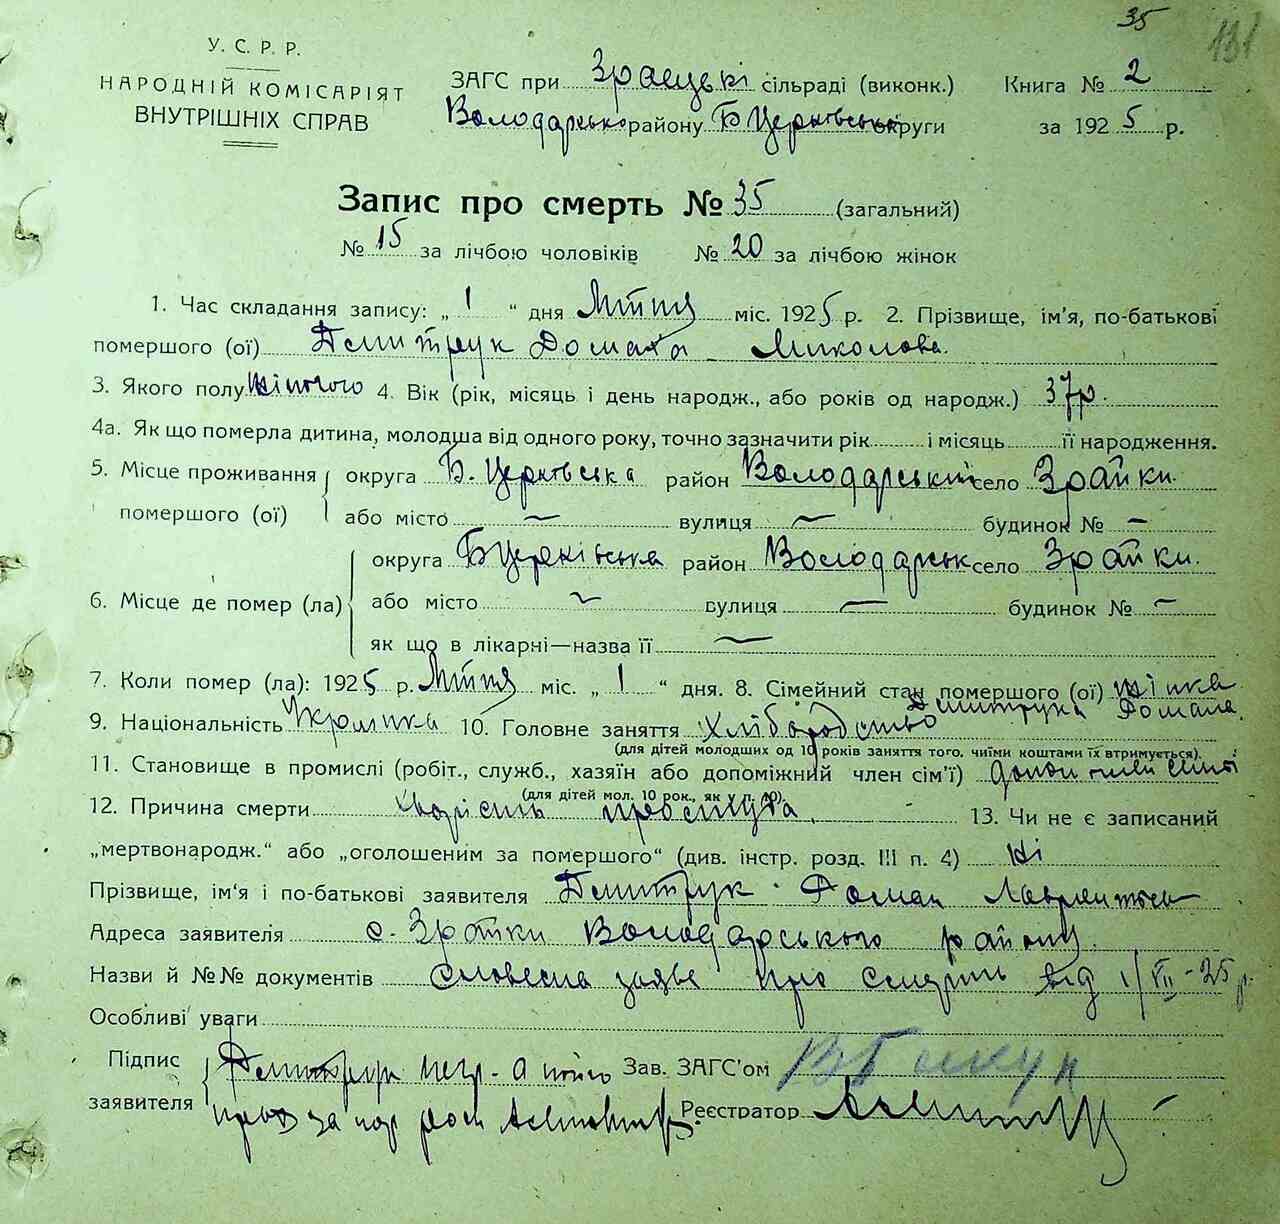 35
131
У. С. Р. Р.
НАРОДНІЙ КОМІСАРІЯТ
ВНУТРІШНІХ СПРАВ
ЗАГС при Зраецькі сільраді (виконк.)
Книга № 2
Володарсько району Б Церківської округи
за 1925 р.
Запис про смерть № 35 (загальний)
№ 15 за лічбою чоловіків № 20 за лічбою жінок
1. Час складання запису: „ 1 “ дня міс. 1925 р. 2. Прізвище, ім'я, по-батькові
помершого (ої) Дмитрук Домаха Миколова.
3. Якого полу жіночого 4. Вік (рік, місяць і день народж., або років од народж.) 37р.
4а. Як що померла дитина, молодша від одного року, точно зазначити рік і місяць її народження.
5. Місце проживання округа Б. Церківська район Володарський село Зрайки.
помершого (ої) або місто — вулиця — будинок № —
округа Б Церківська район Володарськ село Зрайки.
6. Місце де помер (ла) або місто — вулиця — будинок № —
як що в лікарні—назва її —
7. Коли помер (ла): 1925 р. міс. „ 1 “ дня. 8. Сімейний стан помершого (ої) жінка
Дмитрука Домана.
9. Національність Українка 10. Головне заняття хліборобство
(для дітей молодших од 10 років заняття того, чиїми коштами їх втримується).
11. Становище в промислі (робіт., служб., хазяїн або допоміжний член сім'ї)
(для дітей мол. 10 рок., як у п. 10)
12. Причина смерти 13. Чи не є записаний
„мертвонародж.“ або „оголошеним за помершого“ (див. інстр. розд. III п. 4) ні
Прізвище, ім'я і по-батькові заявителя Дмитрук Доман
Адреса заявителя с. Зрайки Володарського району.
Назви й №№ документів Словесна заява про смерть від 1/VII-25 р.
Особливі уваги
Підпис Дмитрук Зав. ЗАГС'ом
заявителя Реєстратор